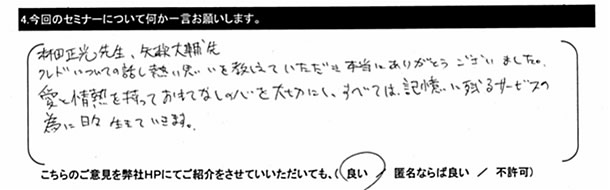 4.今回のセミナーについて何か一言お願いします。
林田正光先生、矢部大輔先生
クレドについての話し熱い思いを教えていただき本当にありがとうございました。
愛と情熱を持っておもてなしの心を大切にし、すべては、記憶に残るサービスの
為に日々生きていきます。
こちらのご意見を弊社HPにてご紹介をさせていいただいても、( 良い / 匿名ならば良い / 不許可)